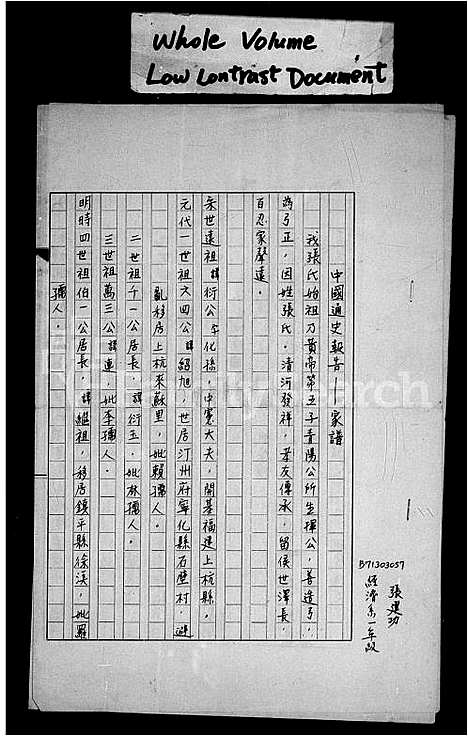 Whole Volume
Low Contrast Document
B71303057
張運功
經濟系一年級
中國通史報告 家譜
我張氏始祖乃黃帝第五子青陽公所生揮公,善造弓,
為弓正,因姓張氏。清河發祥,孝友傳承,留侯世澤長,
百忍家聲遠。
宋世遠祖諱衍公字化孫,中憲大夫,開基福建上杭縣。
元代一世祖六四公諱紹旭,世居汀州府寧化縣石壁村,避
亂移居上杭來蘇里,妣賴孺人。
二世祖千一公居長,諱衍玉,妣林孺人。
三世祖萬三公諱連,妣李孺人。
明時四世祖伯一公居長,諱繼祖,移居鎮平縣徐溪,妣羅
孺人。